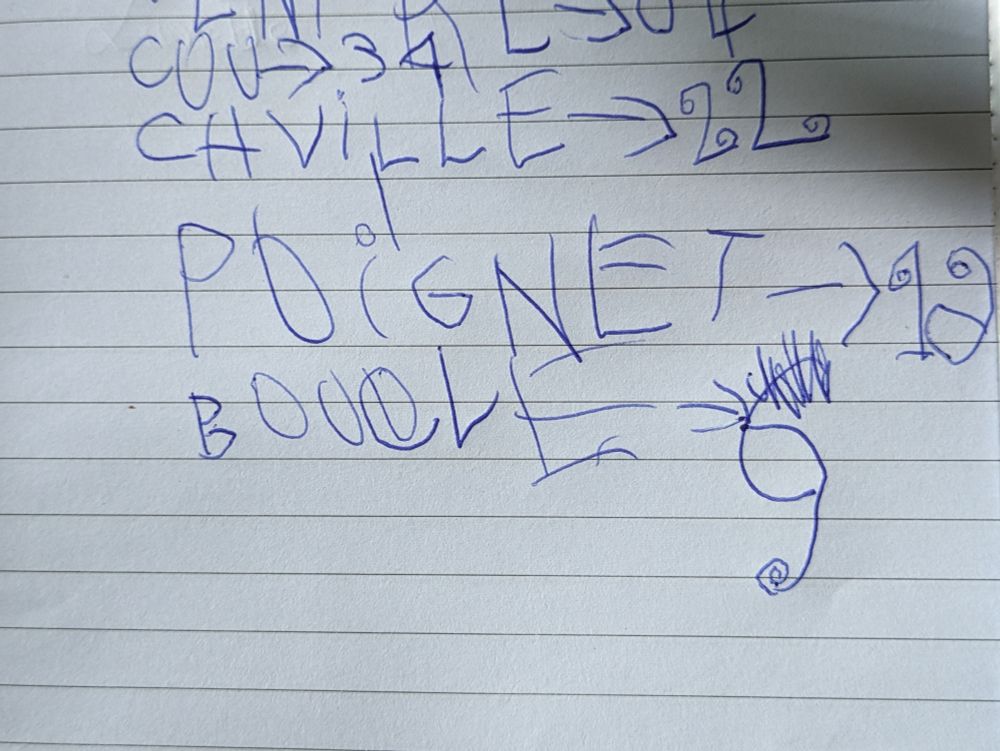 COU→34
CHVILLE→22
POIGNET→18
BOUOLE→9